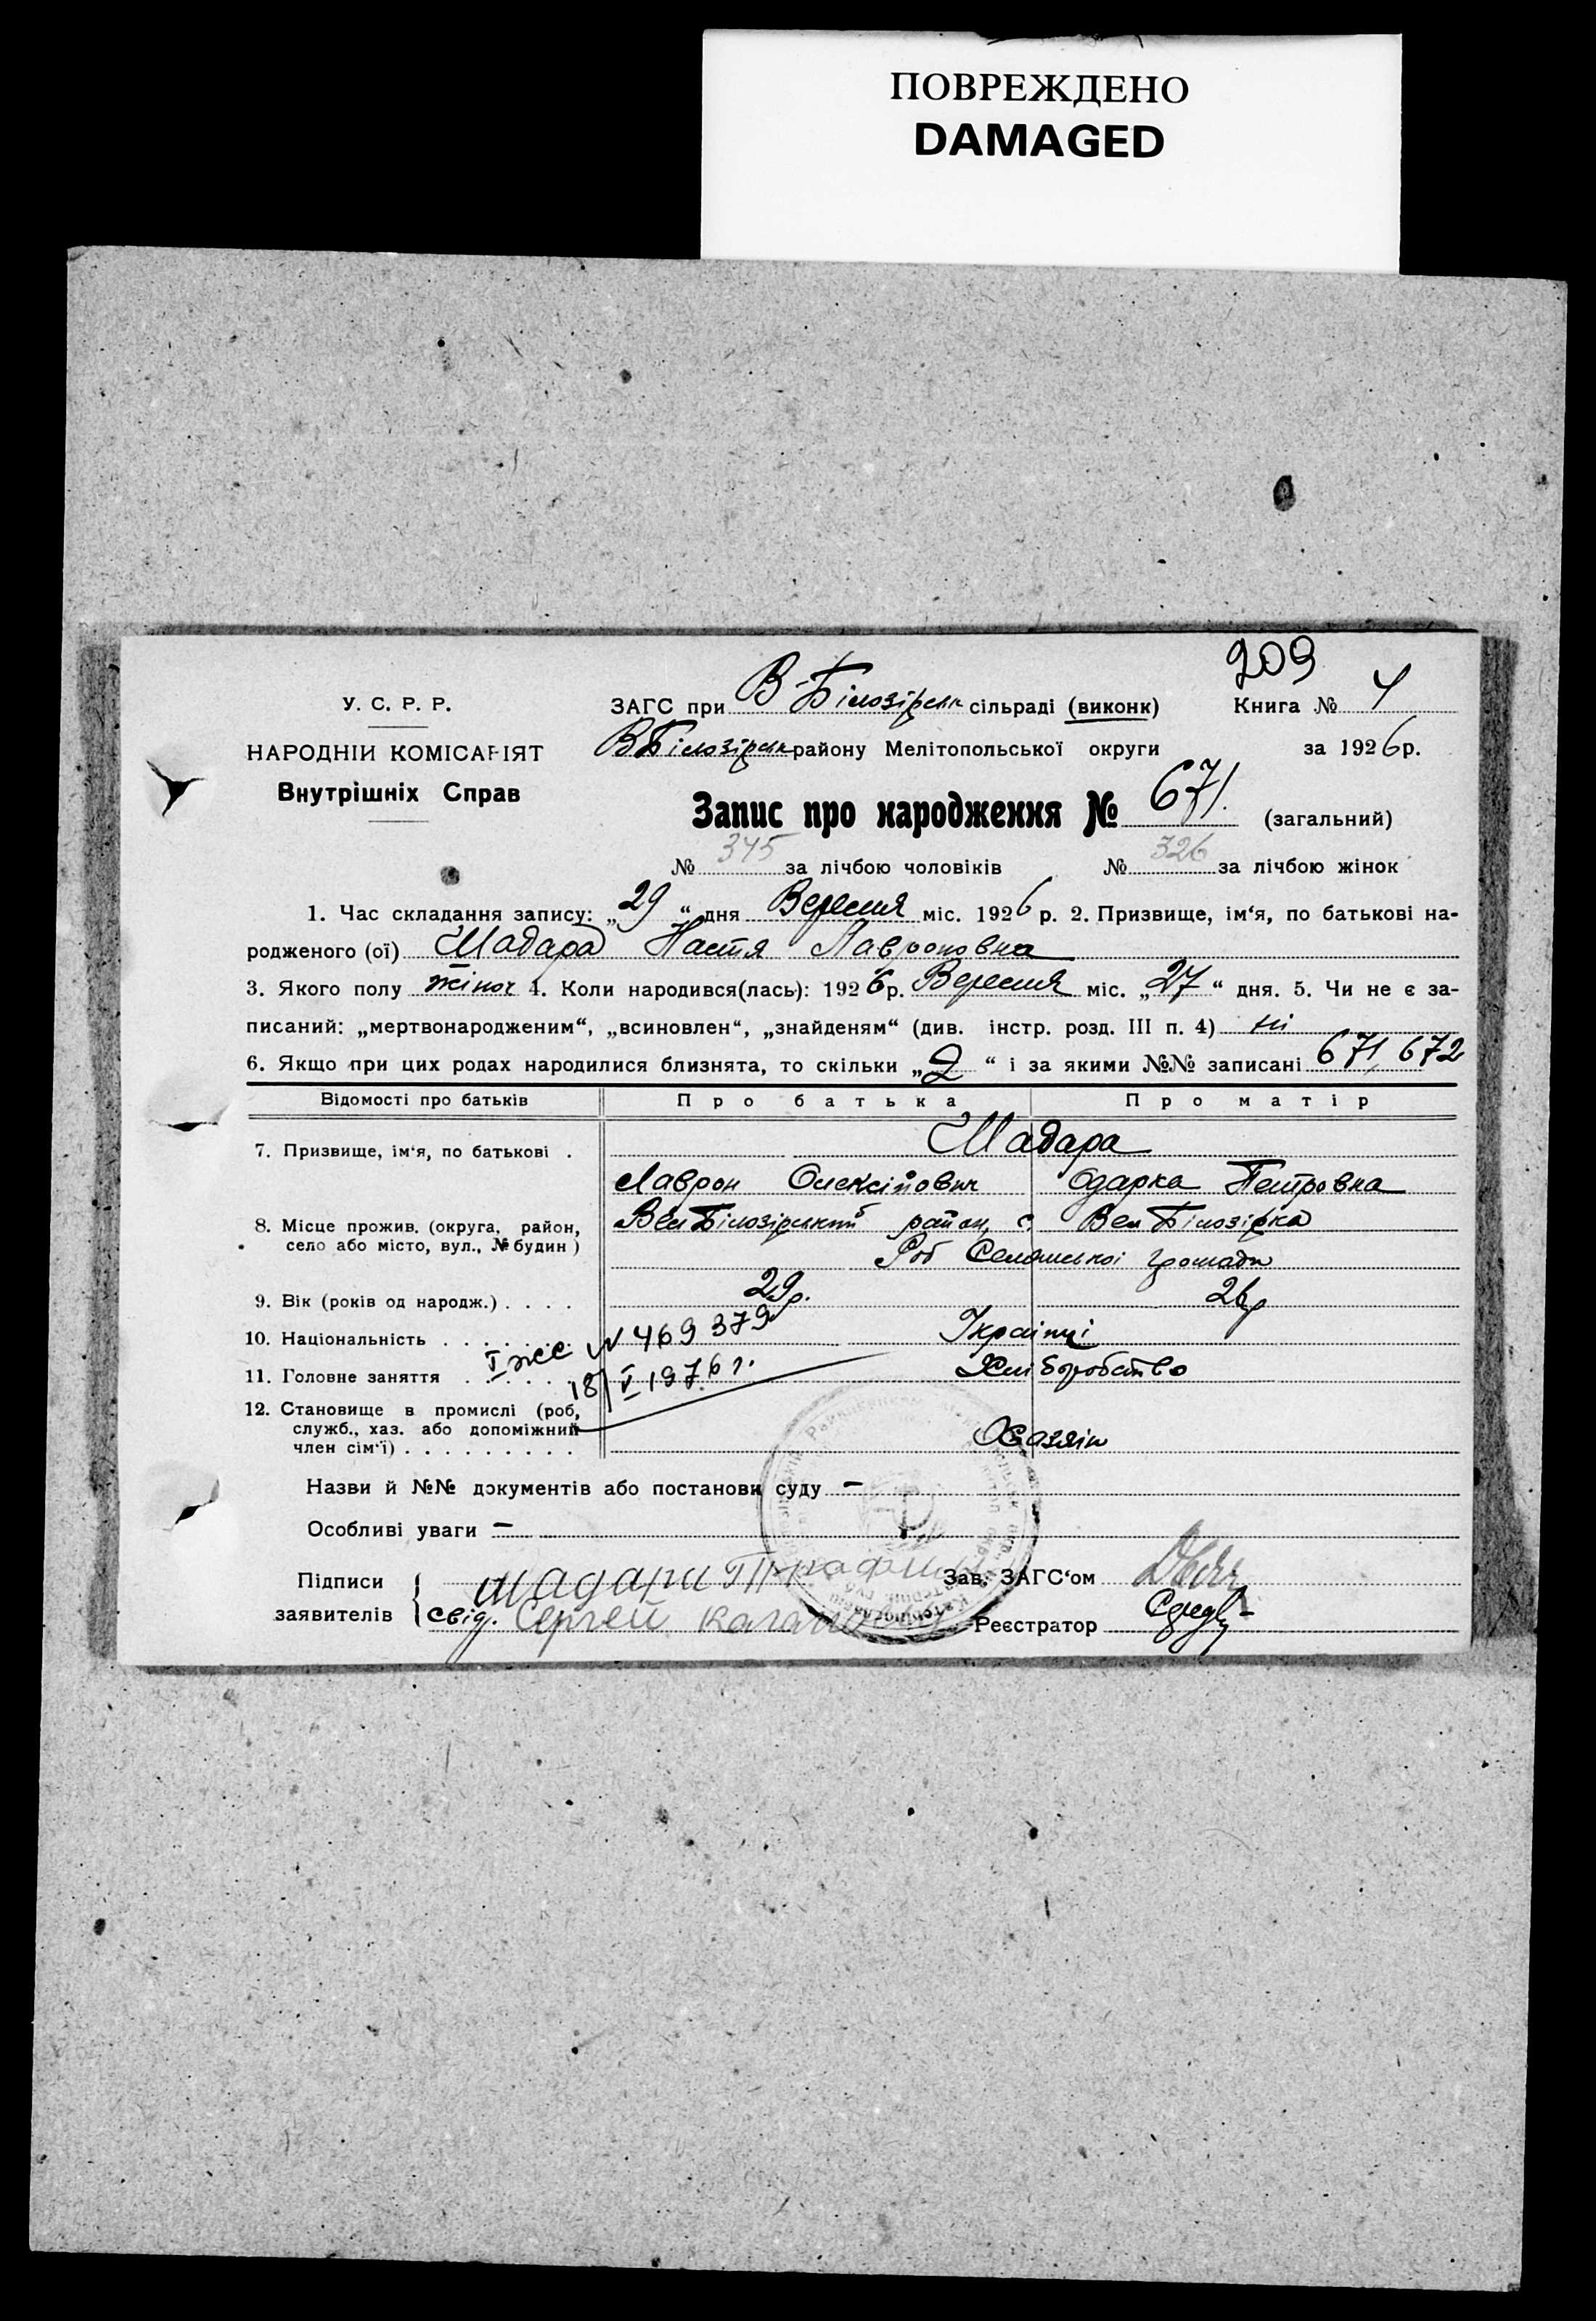 ПОВРЕЖДЕНО
DAMAGED
209
У. С. Р. Р.
ЗАГС при В-Білозірськ сільраді (виконк) Книга № 4
НАРОДНІЙ КОМІСАРІЯТ
Внутрішніх Справ
В Білозірськ району Мелітопольської округи за 1926 р.
Запис про народження № 671. (загальний)
№ 345 за лічбою чоловіків № 326 за лічбою жінок
1. Час складання запису: „29“ дня Вересня міс. 1926 р. 2. Призвище, ім‘я, по батькові на-
родженого (ої) Шадара Настя Лавроновна
3. Якого полу жіноч 4. Коли народився(лась): 1926 р. Вересня міс. „27“ дня. 5. Чи не є за-
писаний: „мертвонародженим“, „всиновлен“, „знайденям“ (див. інстр. розд. III п. 4) ні
6. Якщо при цих родах народилися близнята, то скільки „2“ і за якими №№ записані 671, 672
Відомості про батьків Про батька Про матір
7. Призвище, ім‘я, по батькові . Шадара
Лаврон Олексійович Одарка Петровна
8. Місце прожив. (округа, район, село або місто, вул., № будин) Вел Білозірський район, с. Вел Білозірка
Роб Селянської громади
9. Вік (років од народж.) . . . . 29 р. 26 р
10. Національність . . . . . . . Українці
І жс № 469379
11. Головне заняття . . . . . . Хліборобство
18/V 1976 г.
12. Становище в промислі (роб, служб., хаз. або допоміжний член сім‘ї) . . . . . . . . . Хазяїн
Назви й №№ документів або постанови суду —
Особливі уваги —
Підписи заявителів { Шадара Зав. ЗАГС‘ом
свід. Сергей Реєстратор